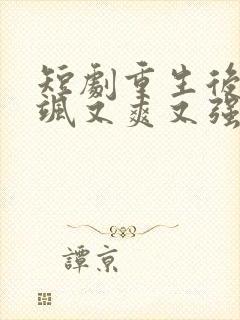 短劇重生後
颯又爽又强
譚京